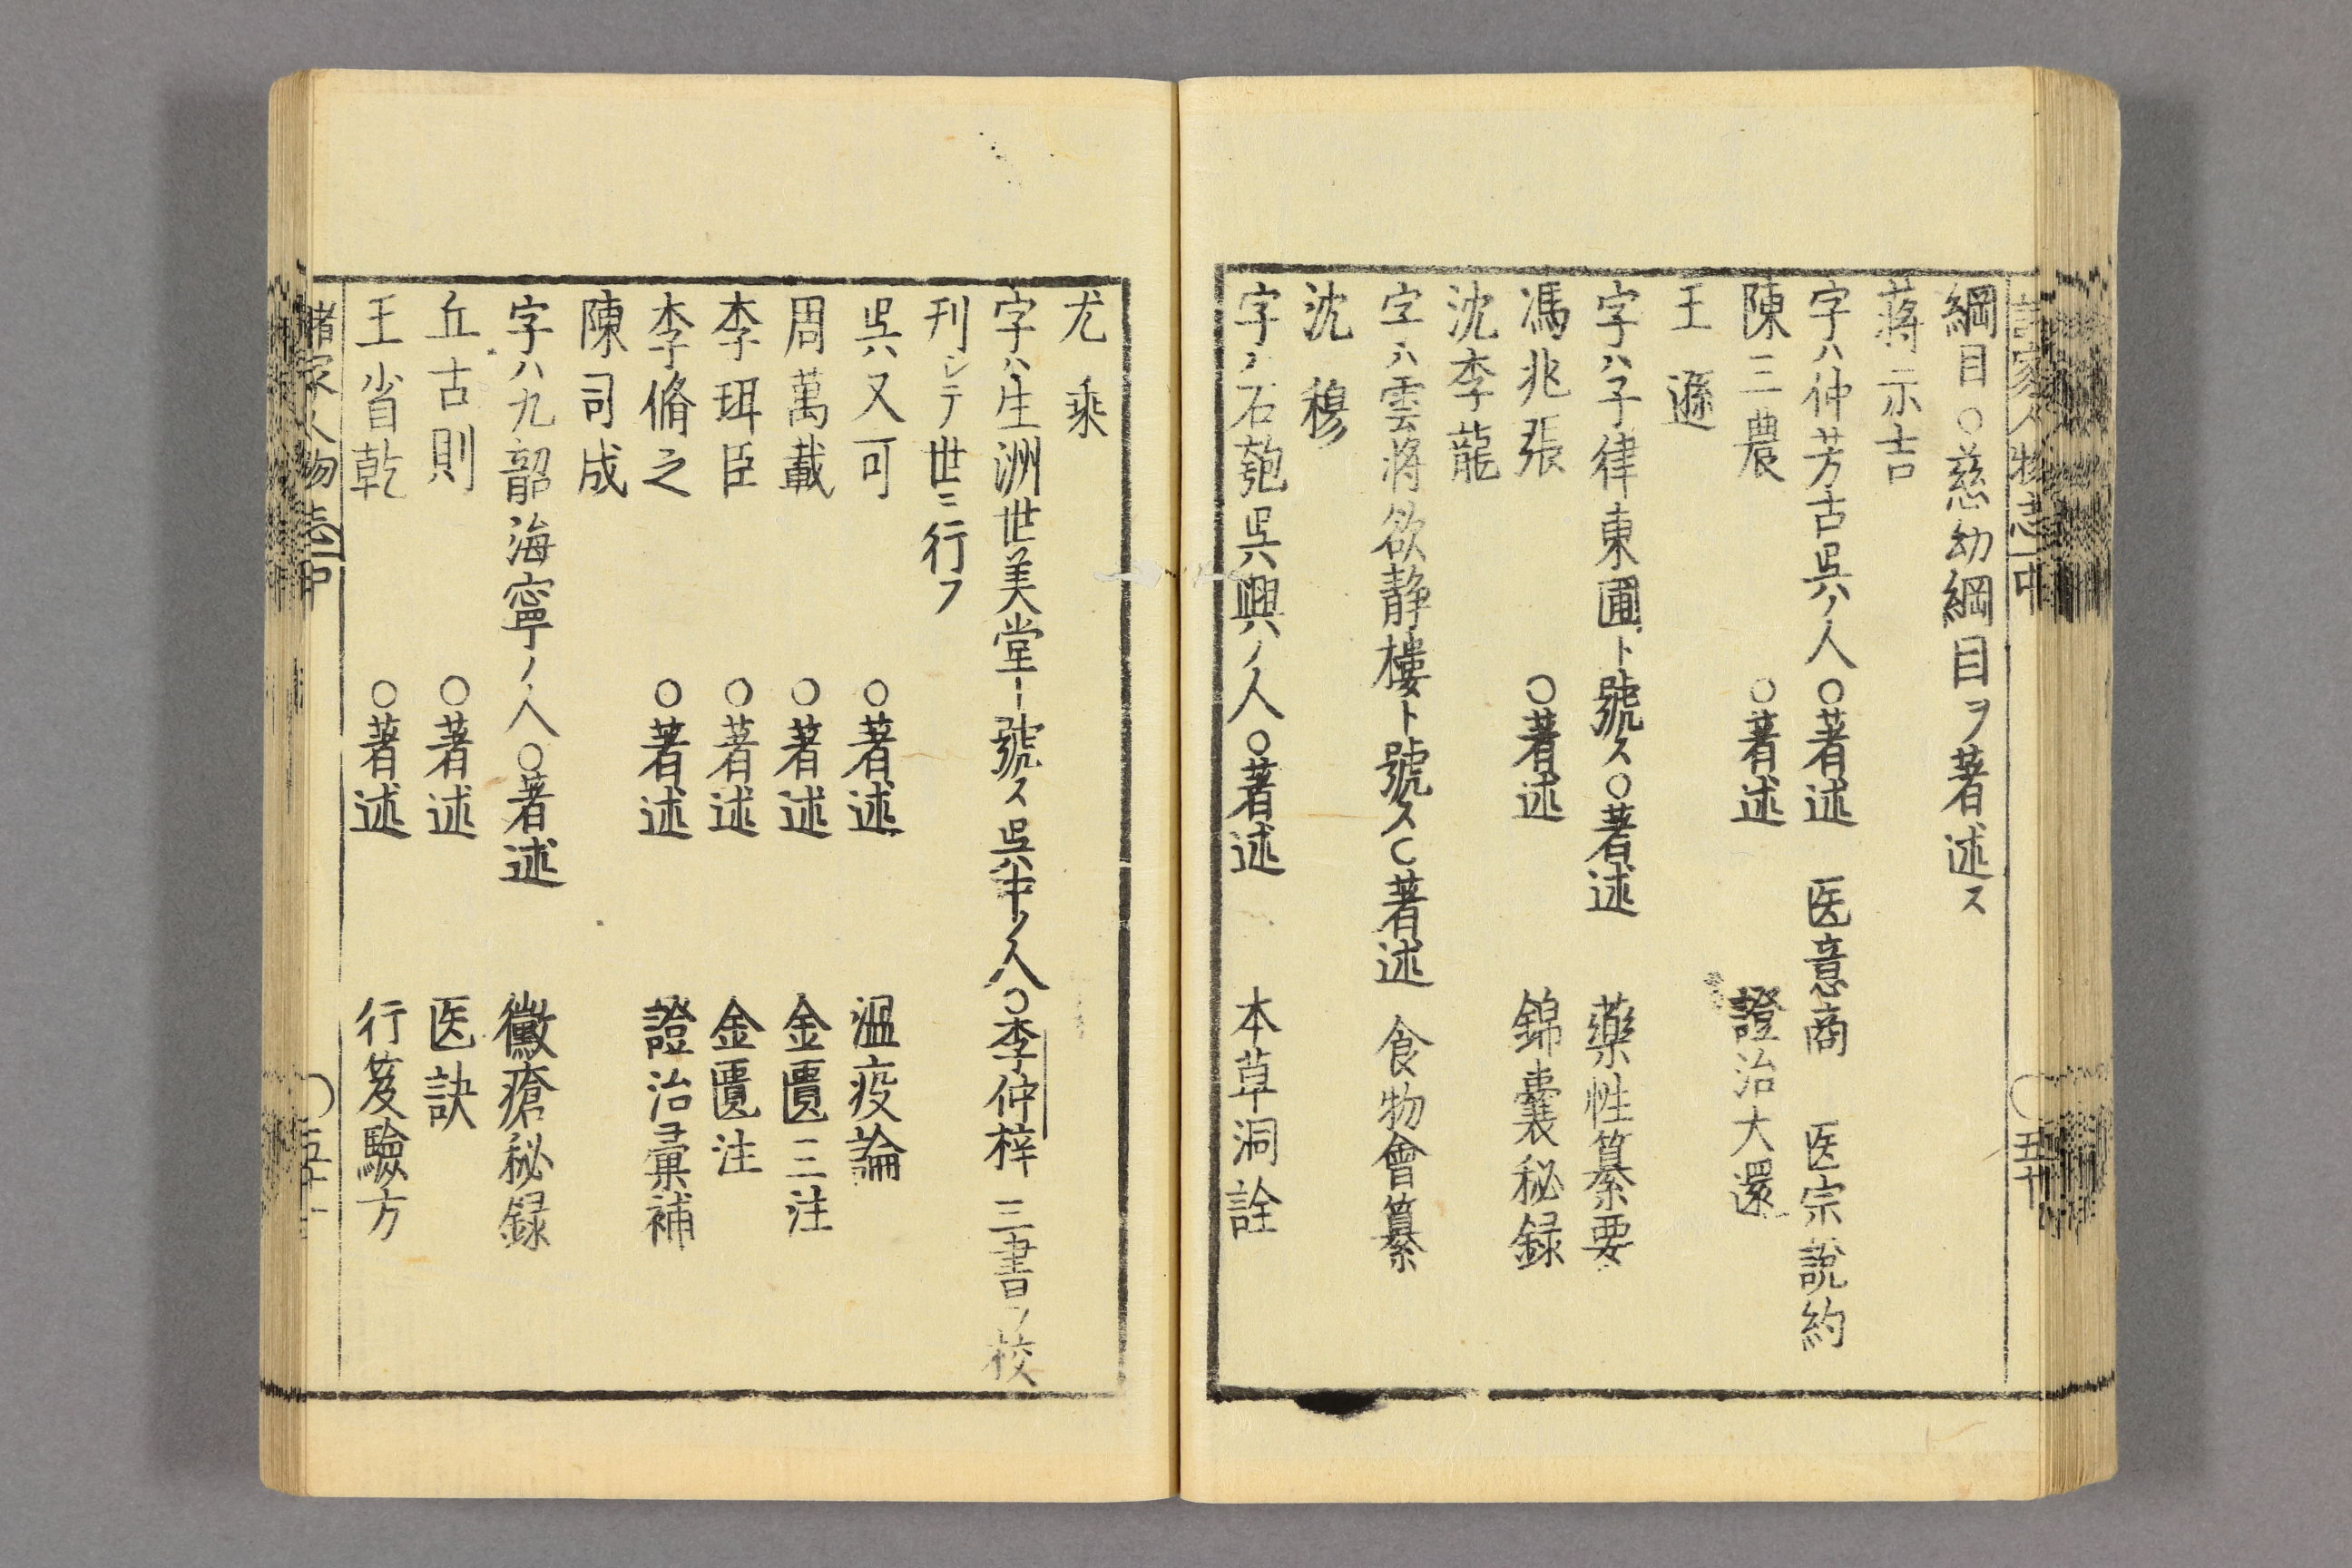 諸家人物志中 〇五十
綱目〇慈幼綱目ヲ著述ス
蒋示吉
字ハ仲芳古呉ノ人〇著述 医意商 医宗說約
陳三農 〇著述 證治大還
王遜
字ハ子律東圃ト號ス〇著述 藥性纂要
馮兆張 〇著述 錦囊秘録
沈李龍
字ハ雲将欲静樓ト號ス〇著述 食物會纂
沈穆
字ノ石匏呉興ノ人〇著述 本草洞詮
尤乗
字ハ生洲世美堂ト號ス呉中ノ人〇李仲梓三書ヲ校
刊シテ世ニ行フ
呉又可 〇著述 温疫論
周萬載 〇著述 金匱三注
李珥臣 〇著述 金匱注
李脩之 〇著述 證治彙補
陳司成
字ハ九韶海寧ノ人〇著述 黴瘡秘録
丘古則 〇著述 医訣
王省乾 〇著述 行笈驗方
諸家人物志中 〇五十一